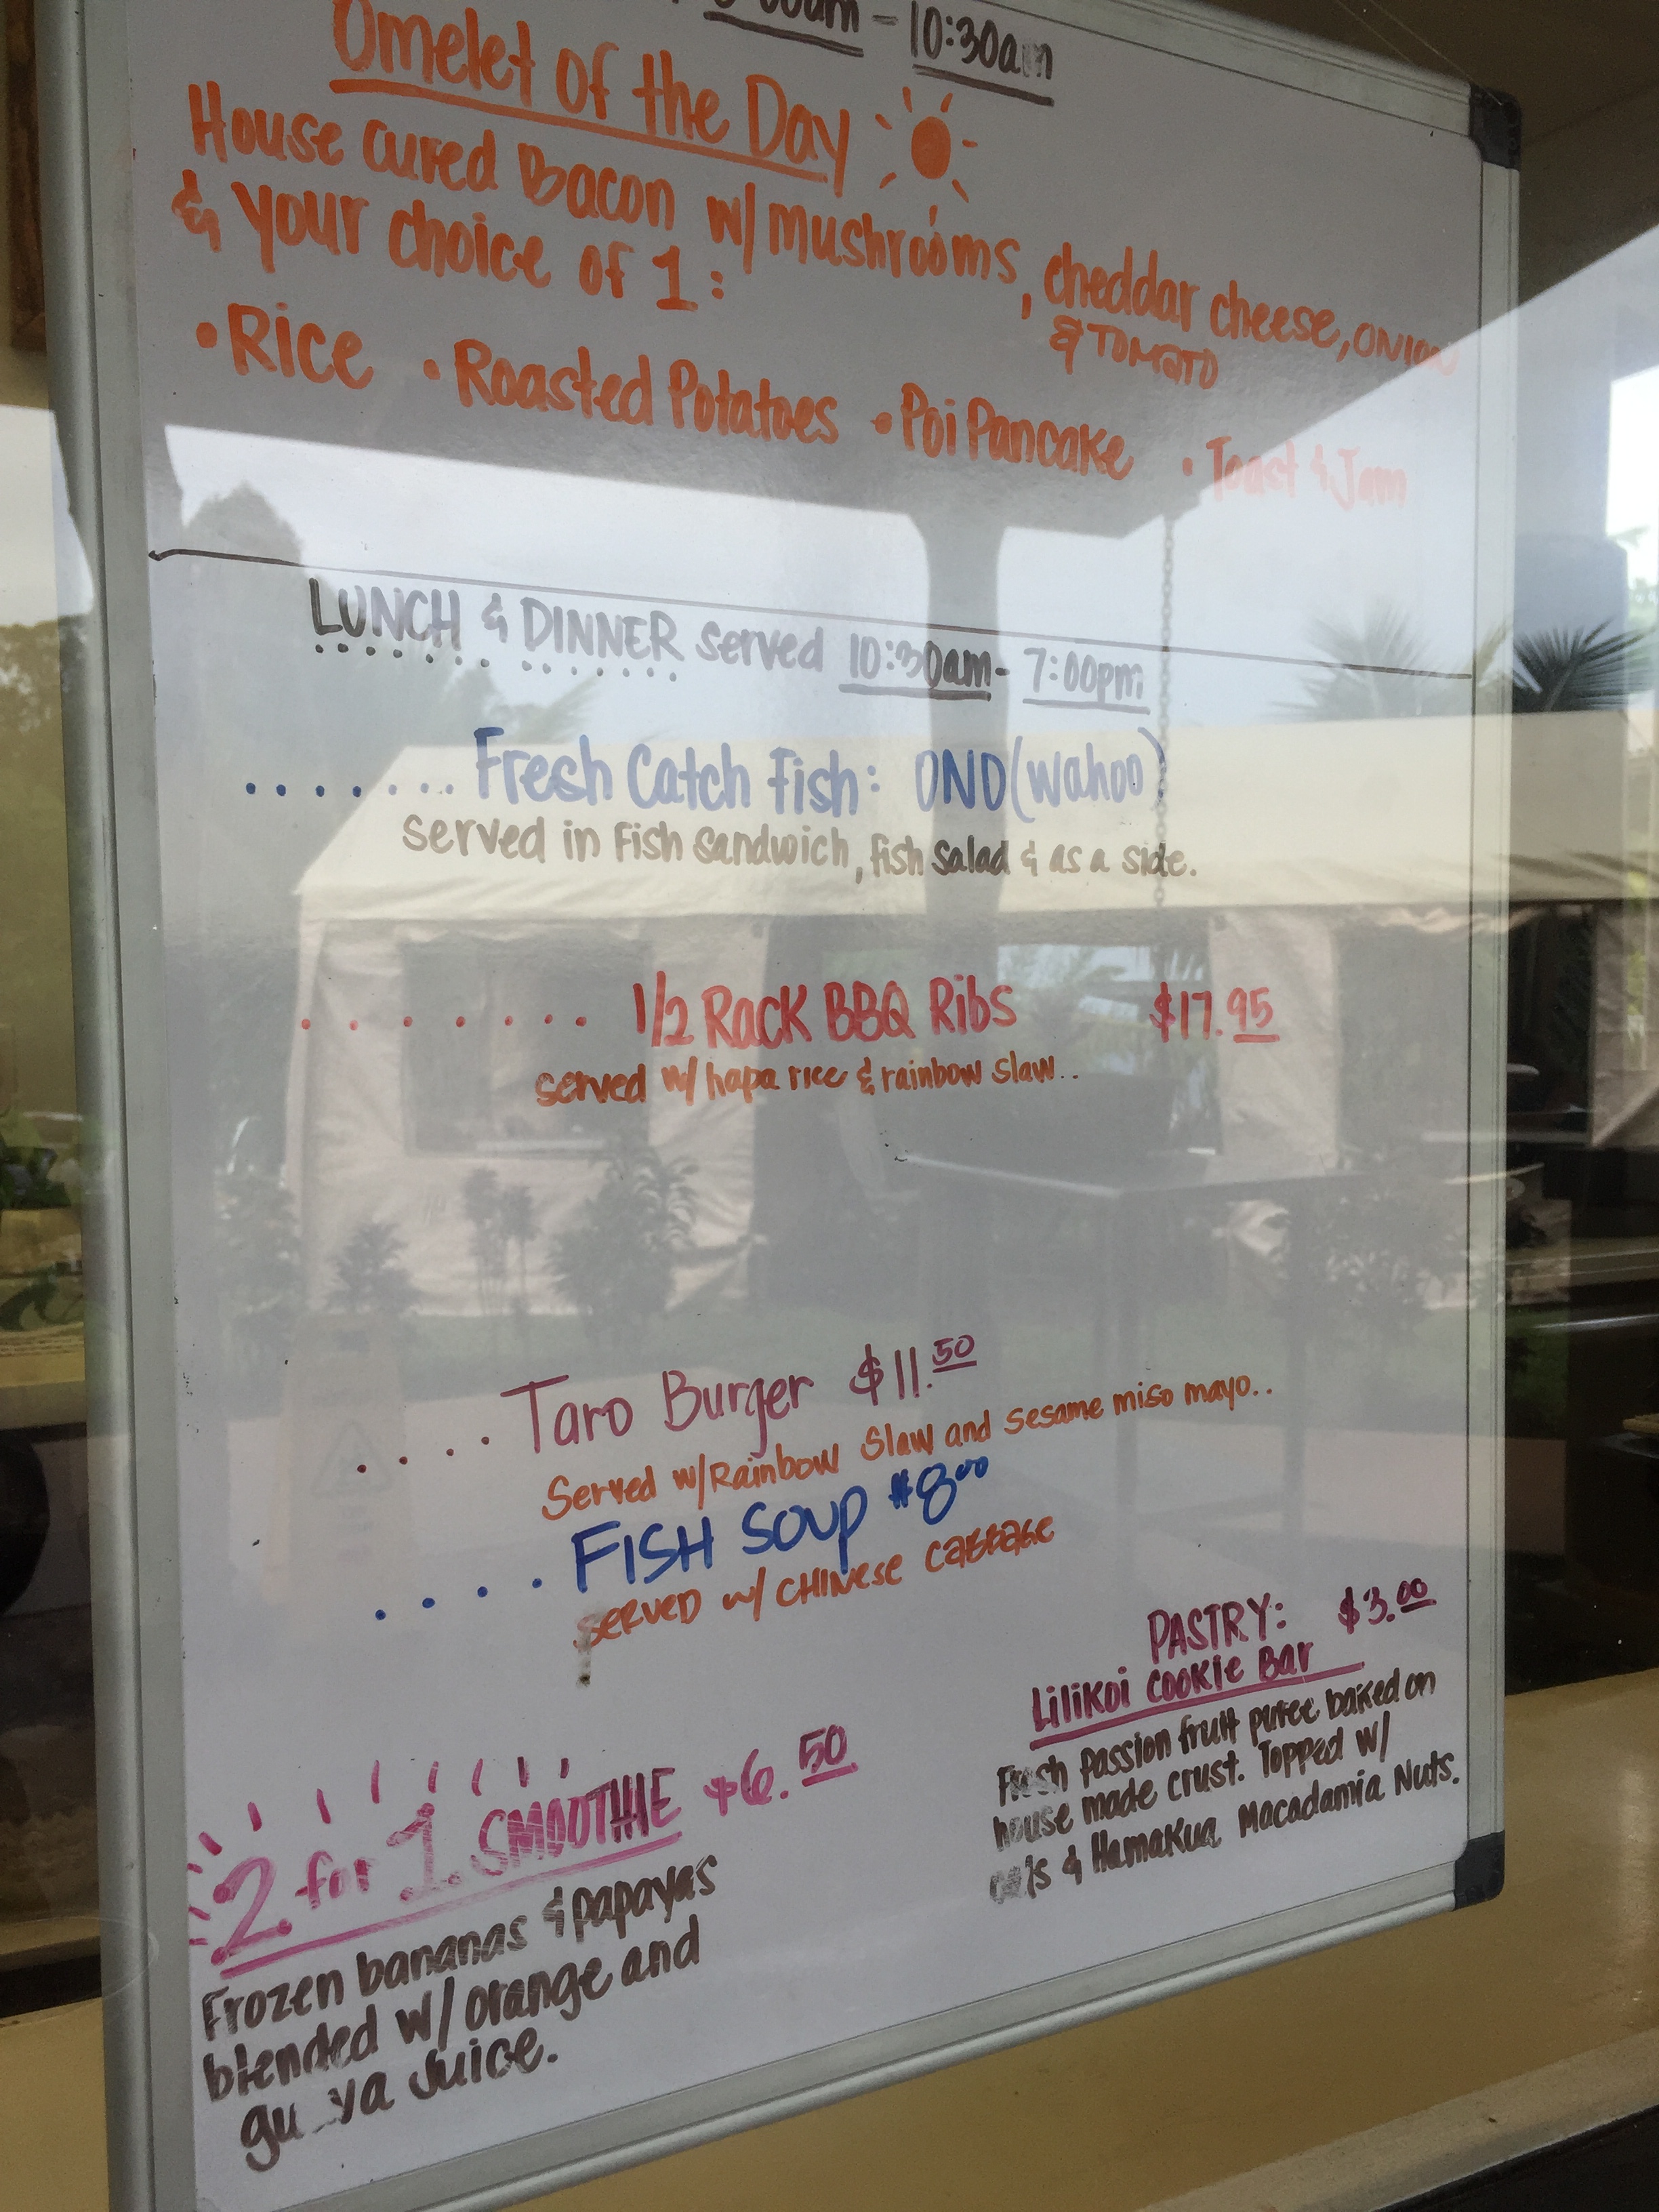 - 10:30am
Omelet of the Day
House cured Bacon w/ mushrooms, cheddar cheese, ONION
& TOMATO
& your choice of 1:
• Rice • Roasted Potatoes • Poi Pancake • Toast & Jam
LUNCH & DINNER served 10:30am - 7:00pm
........ Fresh Catch Fish: ONO (wahoo)
Served in Fish Sandwich, fish salad & as a side.
........ 1/2 Rack BBQ Ribs $17.95
served w/ hapa rice & rainbow slaw..
.... Taro Burger $11.50
Served w/ Rainbow Slaw and sesame miso mayo..
.... FISH SOUP $8.00
SERVED w/ CHINESE CABBAGE
PASTRY: $3.00
Lilikoi Cookie Bar
Fresh Passion fruit puree baked on
house made crust. Topped w/
& Hamakua Macadamia Nuts.
2 for 1 SMOOTHIE $6.50
Frozen bananas & papayas
blended w/ orange and
gu va Juice.